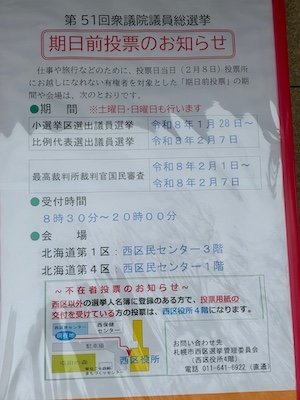 第51回衆議院議員総選挙
期日前投票のお知らせ
仕事や旅行などのために、投票日当日(2月8日)投票所
にお越しになれない有権者を対象とした「期日前投票」の期
間や会場は、次のとおりです。
●期 間 ※土曜日・日曜日も行います
小選挙区選出議員選挙 令和8年1月28日~
比例代表選出議員選挙 令和8年2月7日
最高裁判所裁判官国民審査 令和8年2月1日~
令和8年2月7日
●受付時間
8時30分~20時00分
●会 場
北海道第1区:西区民センター3階
北海道第4区:西区民センター1階
~不在者投票のお知らせ~
西区以外の選挙人名簿に登録のある方で、投票用紙の
交付を受けている方の投票は、西区役所4階になります。
西区民センター
西保健センター
現在地
駐車場
西区役所
お問い合わせ先
札幌市西区選挙管理委員会
(西区役所4階)
電話 011-641-6922(直通)